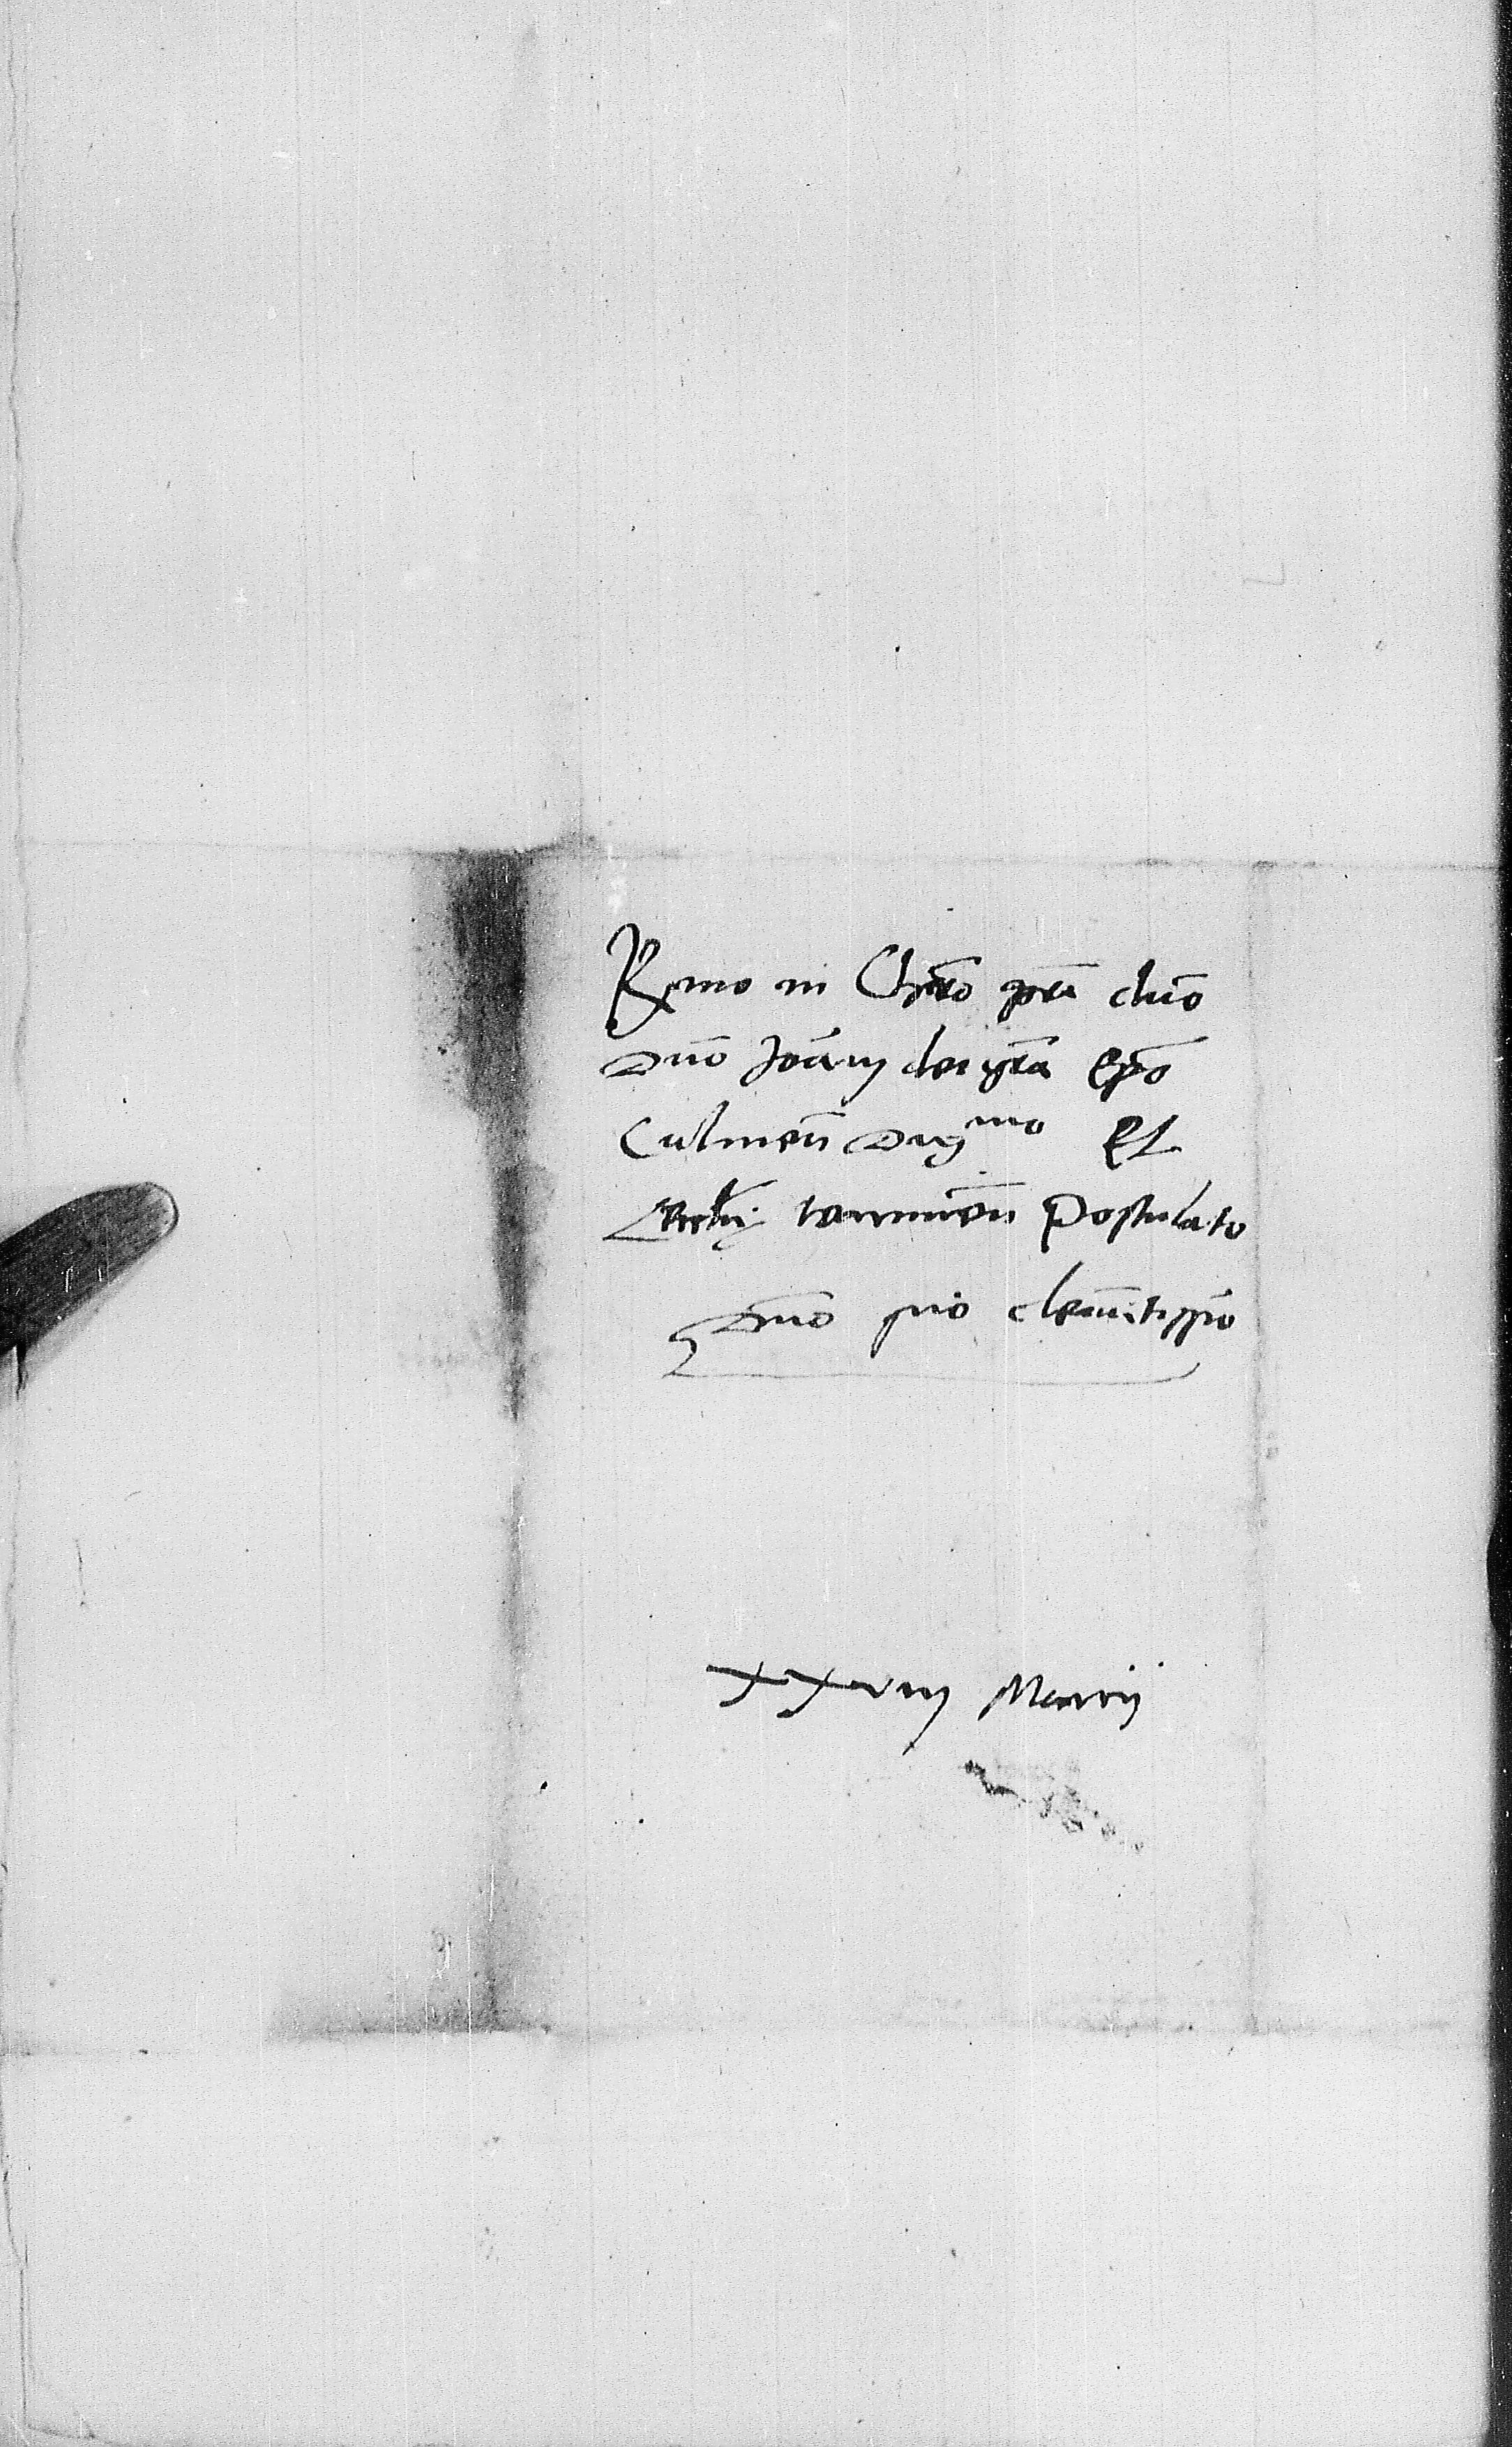 Rmo in Chro pri dno
Dno Joanni dei gra epo
Culmen Digmo Et
Eccliae varmien Postulato
Dno suo clementissio
xxviij Marcij